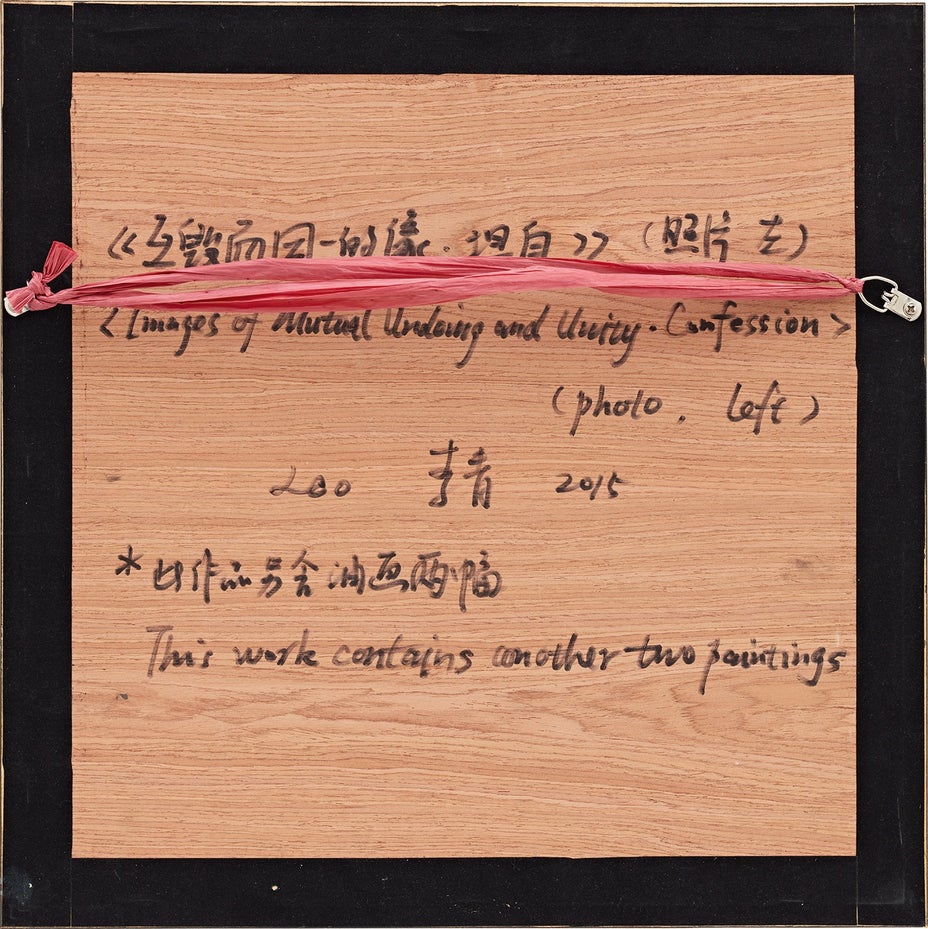 《互毁而同一的像·坦白》（照片 左）
<Images of Mutual Undoing and Unity · Confession>
(photo. left)
李青 2015
*此作品另含油画两幅
This work contains another two paintings